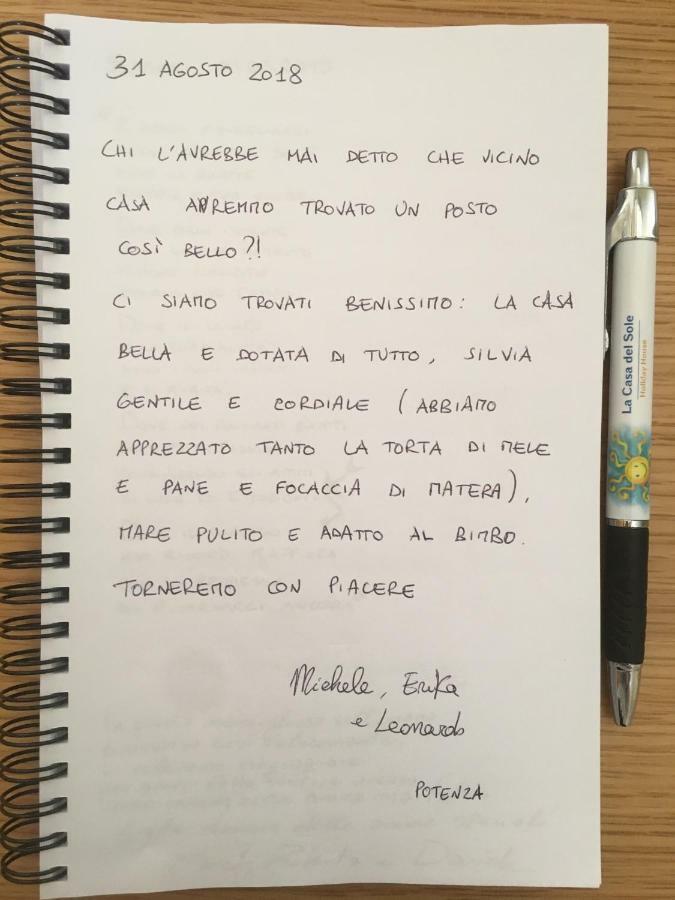 31 AGOSTO 2018
CHI L'AVREBBE MAI DETTO CHE VICINO
CASA AVREMMO TROVATO UN POSTO
COSÌ BELLO?!
CI SIAMO TROVATI BENISSIMO: LA CASA
BELLA E DOTATA DI TUTTO, SILVIA
GENTILE E CORDIALE (ABBIAMO
APPREZZATO TANTO LA TORTA DI MELE
E PANE E FOCACCIA DI MATERA),
MARE PULITO E ADATTO AL BIMBO.
TORNEREMO CON PIACERE
Michele, Erika
e Leonardo
POTENZA
La Casa del Sole
Holiday House